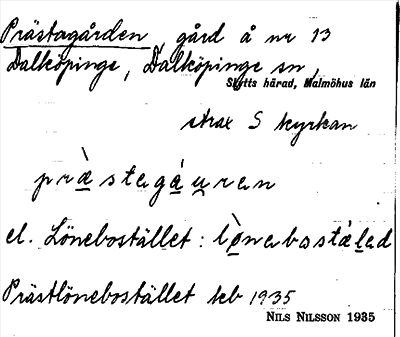 Prästagården, gård å nr 13
Dalköpinge, Dalköpinge sn,
Skytts härad, Malmöhus län
strax S kyrkan
præ̀stagá u̯ran
el. Lönebostället: lø̀nabostǽlad
Prästlönebostället teb 1935
NILS NILSSON 1935